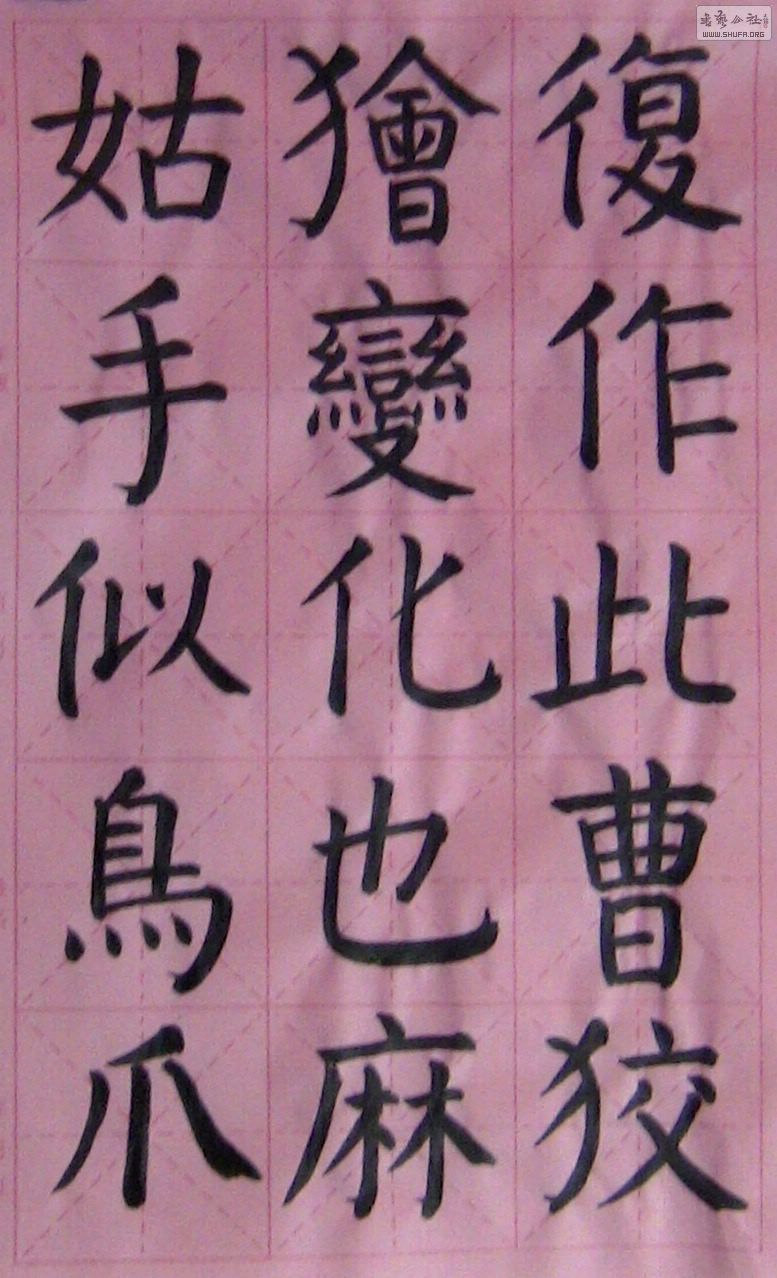 復作此曹狡
獪變化也麻
姑手似鳥爪
WWW.SHUFA.ORG